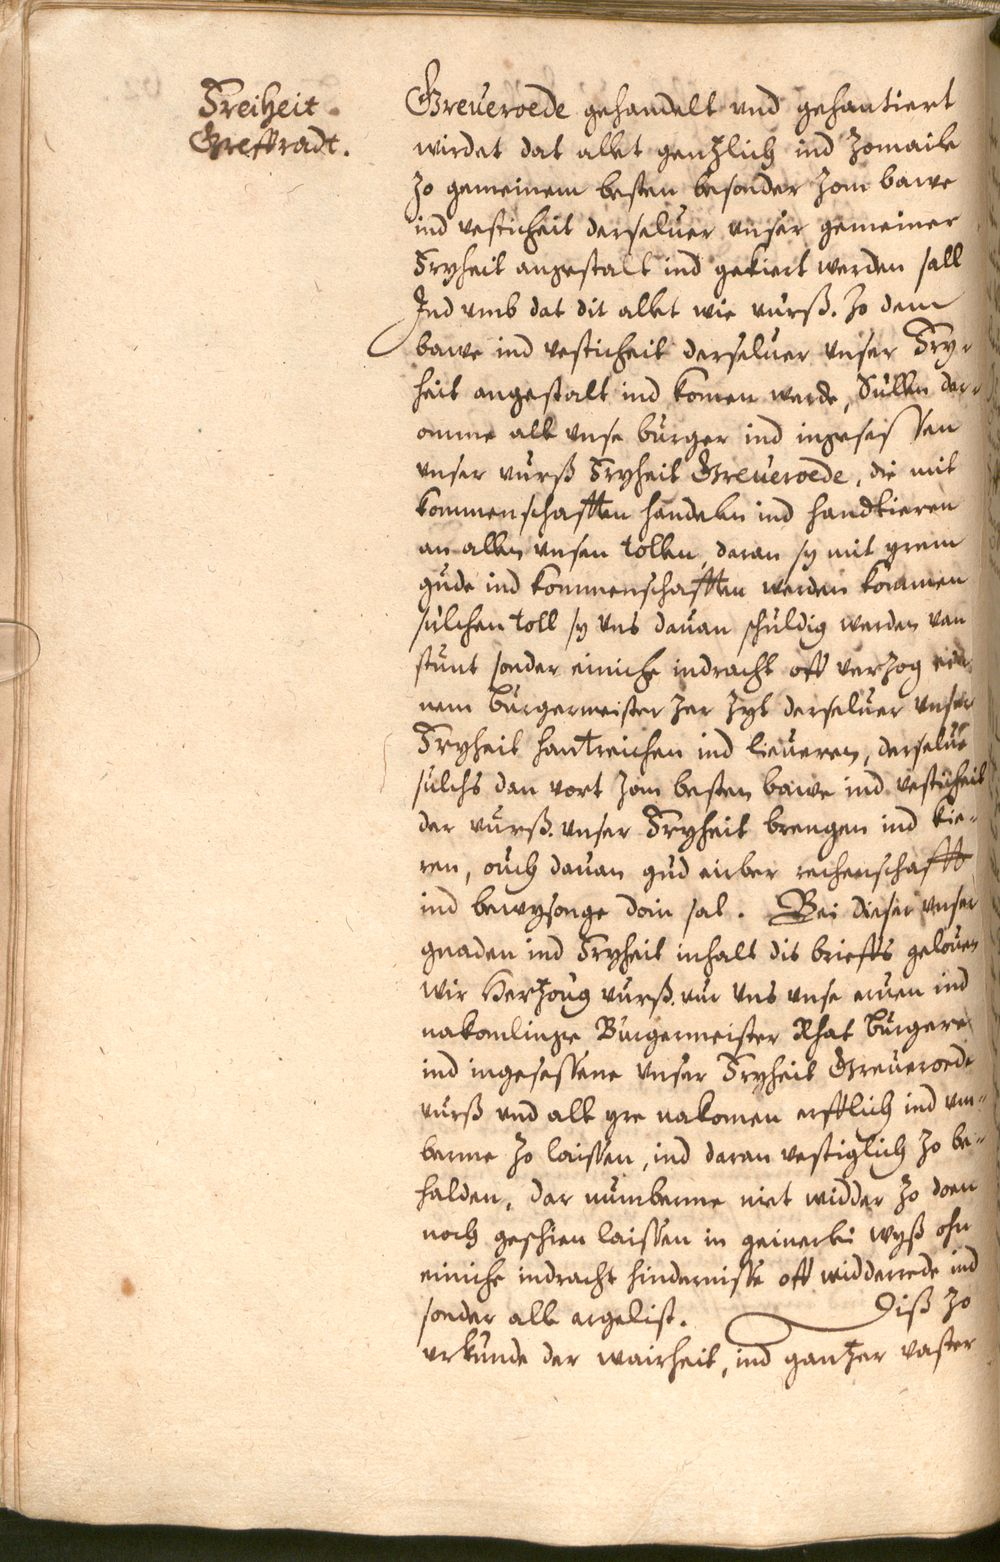 Freiheit
Greffradt.
Greueroede gehandelt vnd gehantiert
wirdet dat allet gentzlich ind zomaile
zo gemeinem besten besonder zom bawe
ind vesticheit derseluer vnser gemeiner
Fryheit angestalt ind gekiert werden sall
Ind vmb dat dit allet wie vurß. zo dem
bawe ind vesticheit derseluer vnser Fry-
heit angestalt ind komen werde, Sullen dar-
omme alle vnse burger ind ingesessen
vnser vurß Fryheit Greueroede, die mit
kommenschafften handelen ind handtieren
an allen vnsen tollen daran sy mit yrem
gude ind kommenschafften werden kommen
sulchen toll sy vns dauan schuldig werden van
stunt sonder einiche indracht off verzog ei-
nem Burgermeister zer zyt derseluer vnser
Fryheit hantreichen ind lieueren, derselue
sulchs dan vort zom besten bawe ind vesticheit
der vurß. vnser Fryheit brengen ind kie-
ren, ouch dauan gud eirber rechenschafft
ind bewysonge doin sal. Bei dieser vnser
gnaden ind Fryheit inhalt dis brieffs gelouen
wir Hertzoug vurß. vur vns vnse eruen ind
nakomlinge Burgermeister Rhat Burgere
ind ingesessene vnser Fryheit Greueroede
vurß vnd alle yre nakomen erfflich ind vm-
berme zo laissen, ind daran vestiglich zo be-
halden, dar numberme niet widder zo doen
noch geschien laissen in geinerlei wyß ohn
einiche indracht hindernisse off widderrede ind
sonder alle argelist. Diß zo
urkunde der wairheit, ind gantzer vaster